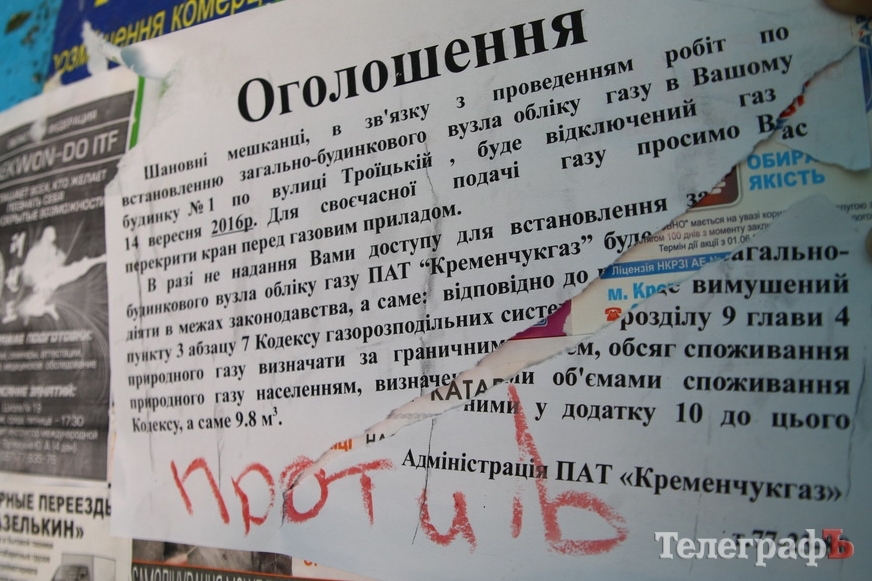 розміщення комерц
Оголошення
Шановні мешканці, в зв'язку з проведенням робіт по
встановленню загально-будинкового вузла обліку газу в Вашому
будинку №1 по вулиці Троїцькій , буде відключений газ
14 вересня 2016р. Для своєчасної подачі газу просимо Вас
перекрити кран перед газовим приладом.
В разі не надання Вами доступу для встановлення за агально-
будинкового вузла обліку газу ПАТ “Кременчукгаз” буде вимушений
діяти в межах законодавства, а саме: відповідно до розділу 9 глави 4
пункту 3 абзацу 7 Кодексу газорозподільних сист ем, обсяг споживання
природного газу визначати за граничним ми об'ємами споживання
природного газу населенням, визначен ними у додатку 10 до цього
Кодексу, а саме 9.8 м³.
Адміністрація ПАТ «Кременчукгаз»
против
ОБИРА
ЯКІСТЬ
мається на увазі
100 днів з моменту
Термін дії акції з 01.06
Ліцензія НКРЗІ АЕ №
м. Кре
КАТА
ФЕДЕРАЦИЯ
KWON-DO ITF
РНЫЕ ПЕРЕЕЗДЫ
АЗЕЛЬКИН»
ТелеграфЪ